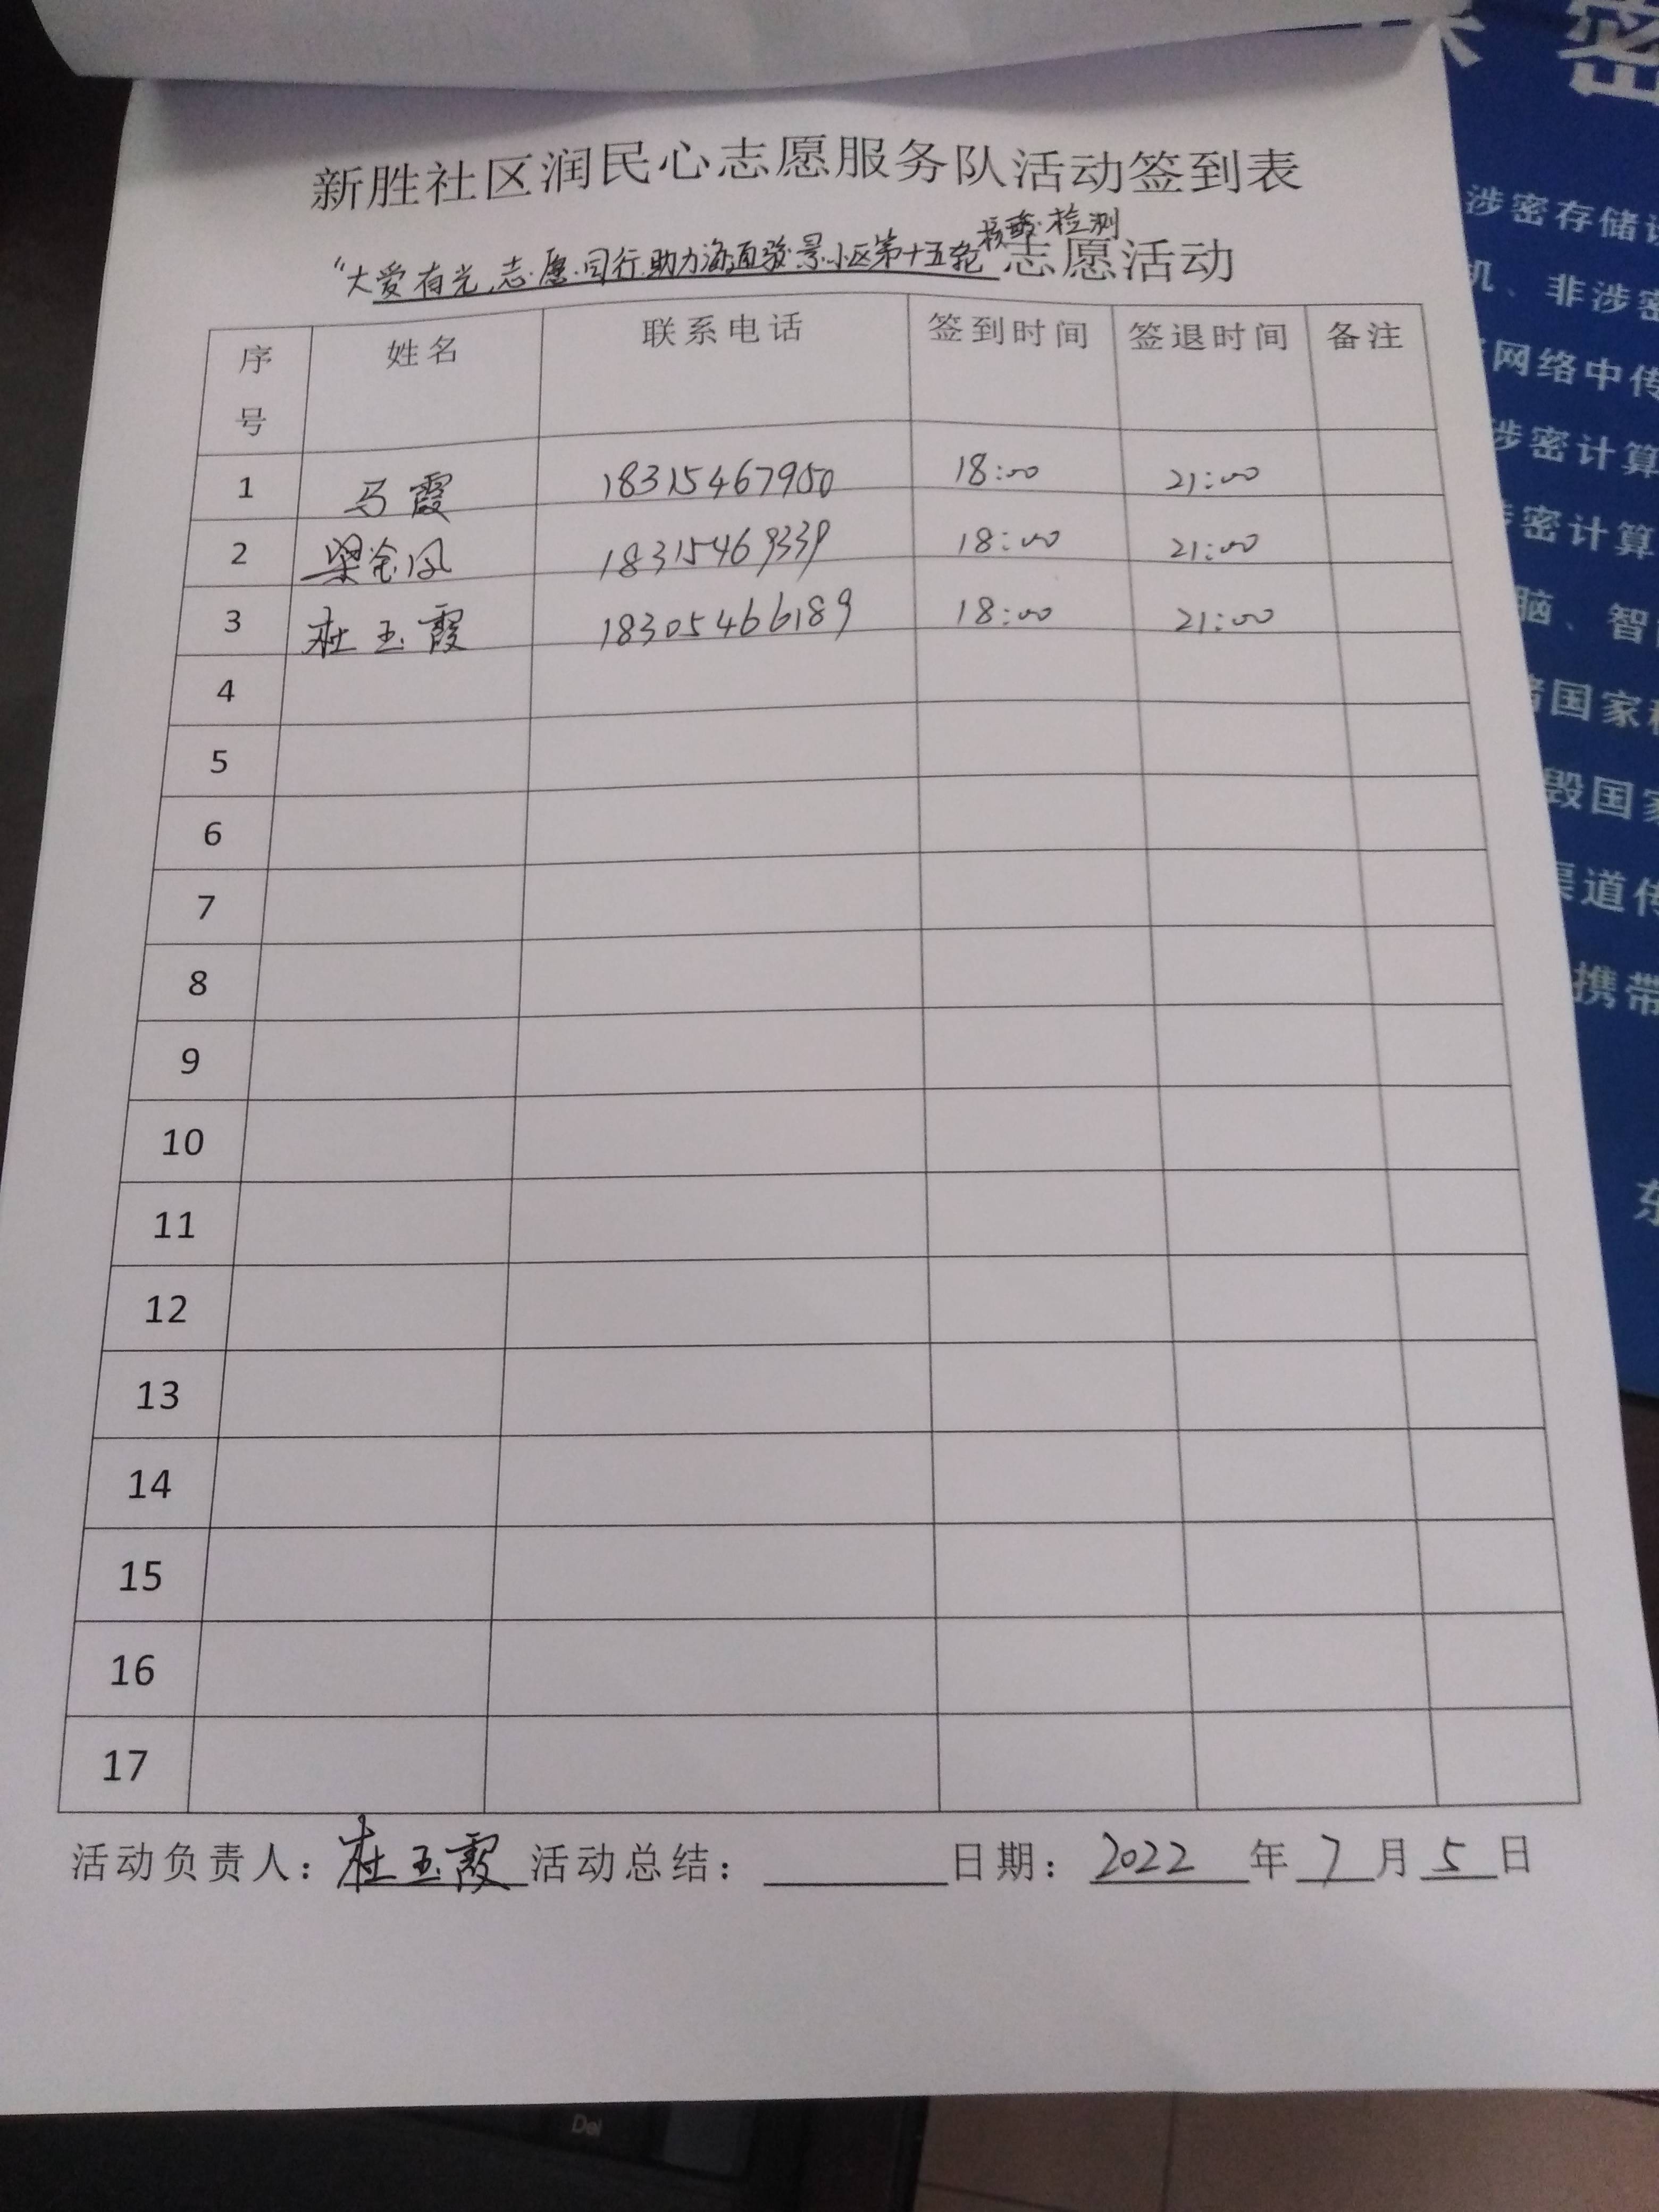 新胜社区润民心志愿服务队活动签到表
核酸检测
“大爱有光,志愿同行.助力海通骏景小区第十五轮志愿活动
序号 姓名 联系电话 签到时间 签退时间 备注
1 马霞 18315467950 18:00 21:00
2 梁金凤 18315469339 18:00 21:00
3 杜玉霞 18305466189 18:00 21:00
4
5
6
7
8
9
10
11
12
13
14
15
16
17
活动负责人:杜玉霞 活动总结: 日期:2022年7月5日
密
涉密存储
机、非涉密
网络中传
涉密计算
密计算
脑、智
国家
毁国
渠道传
携带
东
Del